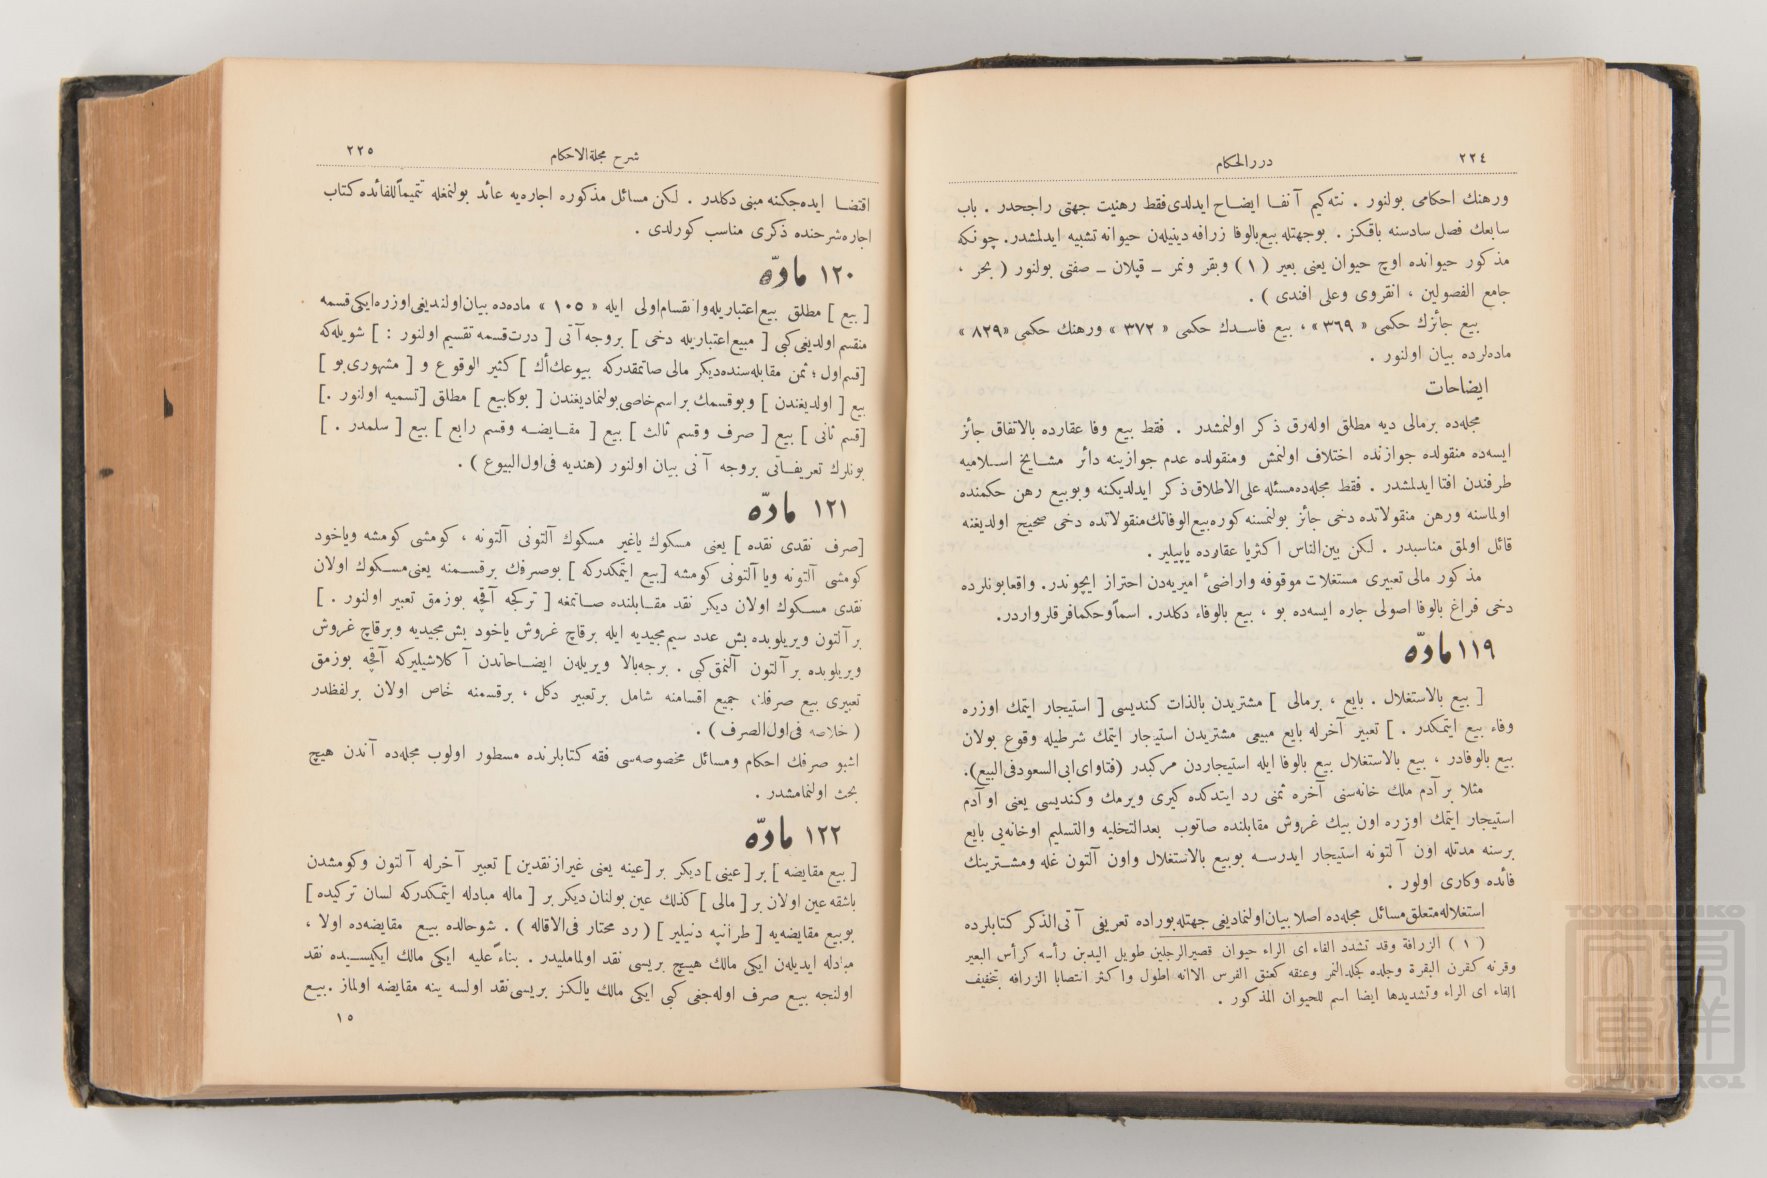 ٢٢٤
دررالحكام
ورهنك احكامى بولنور . نته‌كيم آنفــا ايضــاح ايدلدى فقط رهنيت جهتى راجحدر . باب
سابعك فصل سادسنه باقكز . بوجهتله بيع بالوفا زرافه دينيلەن حيوانه تشبيه ايدلمشدر. چونكه
مذكور حيوانده اوچ حيوان يعنى بعير (١) وبقر ونمر ــ قپلان ــ صفتى بولنور ( بحر ،
جامع الفصولين ، انقروى وعلى افندى ) .
بيع جائزك حكمى « ٣٦٩ » ، بيع فاســدك حكمى « ٣٧٢ » ورهنك حكمى « ٨٢٩ »
ماده‌لرده بيان اولنور .
ايضاحات
مجله‌ده برمالى ديه مطلق اوله‌رق ذكر اولنمشدر . فقط بيع وفا عقارده بالاتفاق جائز
ايسه‌ده منقولده جوازنده اختلاف اولنمش ومنقولده عدم جوازينه دائر مشــايخ اســلاميه
طرفندن افتا ايدلمشدر . فقط مجله‌ده مسئله على الاطلاق ذكر ايدلديكنه وبو بيع رهن حكمنده
اولماسنه ورهن منقولاتده دخى جائز بولنمسنه كوره بيع الوفاتك منقولاتده دخى صحيح اولديغنه
قائل اولمق مناسبدر . لكن بين الناس اكثريا عقارده ياپيلير .
مذكور مالى تعبيرى مستغلات موقوفه واراضئ اميريه‌دن احتراز ايچوندر. واقعا بونلرده
دخى فراغ بالوفا اصولى جاره ايسه‌ده بو ، بيع بالوفاء دكلدر. اسماً وحكما فرقلر واردر.
١١٩ مادّه
[ بيع بالاستغلال . بايع ، برمالى ] مشتريدن بالذات كنديسى [ استيجار ايتمك اوزره
وفاء بيع ايتمكدر . ] تعبير آخرله بايع مبيعى مشتريدن استيجار ايتمك شرطيله وقوع بولان
بيع بالوفادر ، بيع بالاستغلال بيع بالوفا ايله استيجاردن مركبدر (فتاواى ابى السعود فى البيع).
مثلا بر آدم ملك خانه‌سنى آخره ثمنى رد ايتدكده كيرى ويرمك وكنديسى يعنى او آدم
استيجار ايتمك اوزره اون بيك غروش مقابلنده صاتوب بعد التخليه والتسليم او خانه‌يى بايع
برسنه مدتله اون آلتونه استيجار ايدرســه بو بيع بالاستغلال واون آلتون غله ومشــترينك
فائده وكارى اولور .
استغلاله متعلق مسائل مجله‌ده اصلا بيان اولنماديغى جهتله بوراده تعريفى آتى الذكر كتابلرده
( ١ ) الزرافة وقد تشدد الفاء اى الراء حيوان قصير الرجلين طويل اليدين رأسه كرأس البعير
وقرنه كقرن البقرة وجلده كجلد النمر وعنقه كعنق الفرس الا انه اطول واكثر انتصابا الزرافه بتخفيف
الفاء اى الراء وتشديدها ايضا اسم للحيوان المذكور .
شرح مجلة الاحكام
٢٢٥
اقتضــا ايده‌جكنه مبنى دكلدر . لكن مسائل مذكوره اجاره‌يه عائد بولنمغله تتميماً للفائده كتاب
اجاره شرحنده ذكرى مناسب كورلدى .
١٢٠ مادّه
[ بيع ] مطلق بيع اعتباريله وانقسام اولى ايله « ١٠٥ » ماده‌ده بيان اولنديغى اوزره ايكى قسمه
منقسم اولديغى كبى [ مبيع اعتباريله دخى ] بروجه آتى [ درت قسمه تقسيم اولنور : ] شويله‌كه
[قسم اول ؛ ثمن مقابله‌سنده ديكر مالى صاتمقدركه بيوعك اك ] كثير الوقوع و [ مشهورى بو ]
بيع [ اولديغندن ] وبو قسمك بر اسم خاصى بولنماديغندن [ بوكا بيع ] مطلق [تسميه اولنور .]
[قسم ثانى ] بيع [ صرف وقسم ثالث ] بيع [ مقــايضــه وقسم رابع ] بيع [ سلمدر . ]
بونلرك تعريفــاتى بروجه آتى بيان اولنور (هنديه فى اول البيوع ) .
١٢١ مادّه
[صرف نقدى نقده ] يعنى مسكوك ياغير مسكوك آلتونى آلتونه ، كومشى كومشه وياخود
كومشى آلتونه ويا آلتونى كومشه [بيع ايتمكدركه ] بوصرفك برقســمنه يعنى مســكوك اولان
نقدى مســكوك اولان ديكر نقد مقــابلنده صــاتمغه [ تركجه آقچه بوزمق تعبير اولنور . ]
بر آلتون ويريلوبده بش عدد سيم مجيديه ايله برقاچ غروش ياخود بش مجيديه وبرقاچ غروش
ويريلوبده بر آلتون آلنمق كبى . برجه‌بالا ويريلەن ايضــاحاتدن آكلاشيليركه آقچه بوزمق
تعبيرى بيع صرفك جميع اقسامنه شامل برتعبير دكل ، برقسمنه خاص اولان برلفظدر
( خلاصه فى اول الصرف ) .
اشبو صرفك احكام ومسائل مخصوصه‌سى فقه كتابلرنده مسطور اولوب مجله‌ده آندن هيچ
بحث اولنمامشدر .
١٢٢ مادّه
[ بيع مقايضه ] بر [ عينى ] ديكر بر [عينه يعنى غير از نقدين ] تعبير آخرله آلتون وكومشدن
باشقه عين اولان بر [ مالى ] كذلك عين بولنان ديكر بر [ ماله مبادله ايتمكدركه لسان تركيده ]
بوبيع مقايضه‌يه [ طرانپه دنيلير ] ( رد محتار فى الاقاله ) . شوحالده بيــع مقايضه‌ده اولا ،
مبادله ايديلەن ايكى مالك هيــچ بريسى نقد اولمامليدر . بناءً عليه ايكى مالك ايكيســيده نقد
اولنجه بيع صرف اوله‌جغى كبى ايكى مالك يالكز بريسى نقد اولسه ينه مقايضه اولماز . بيع
١٥
TOYO BUNKO